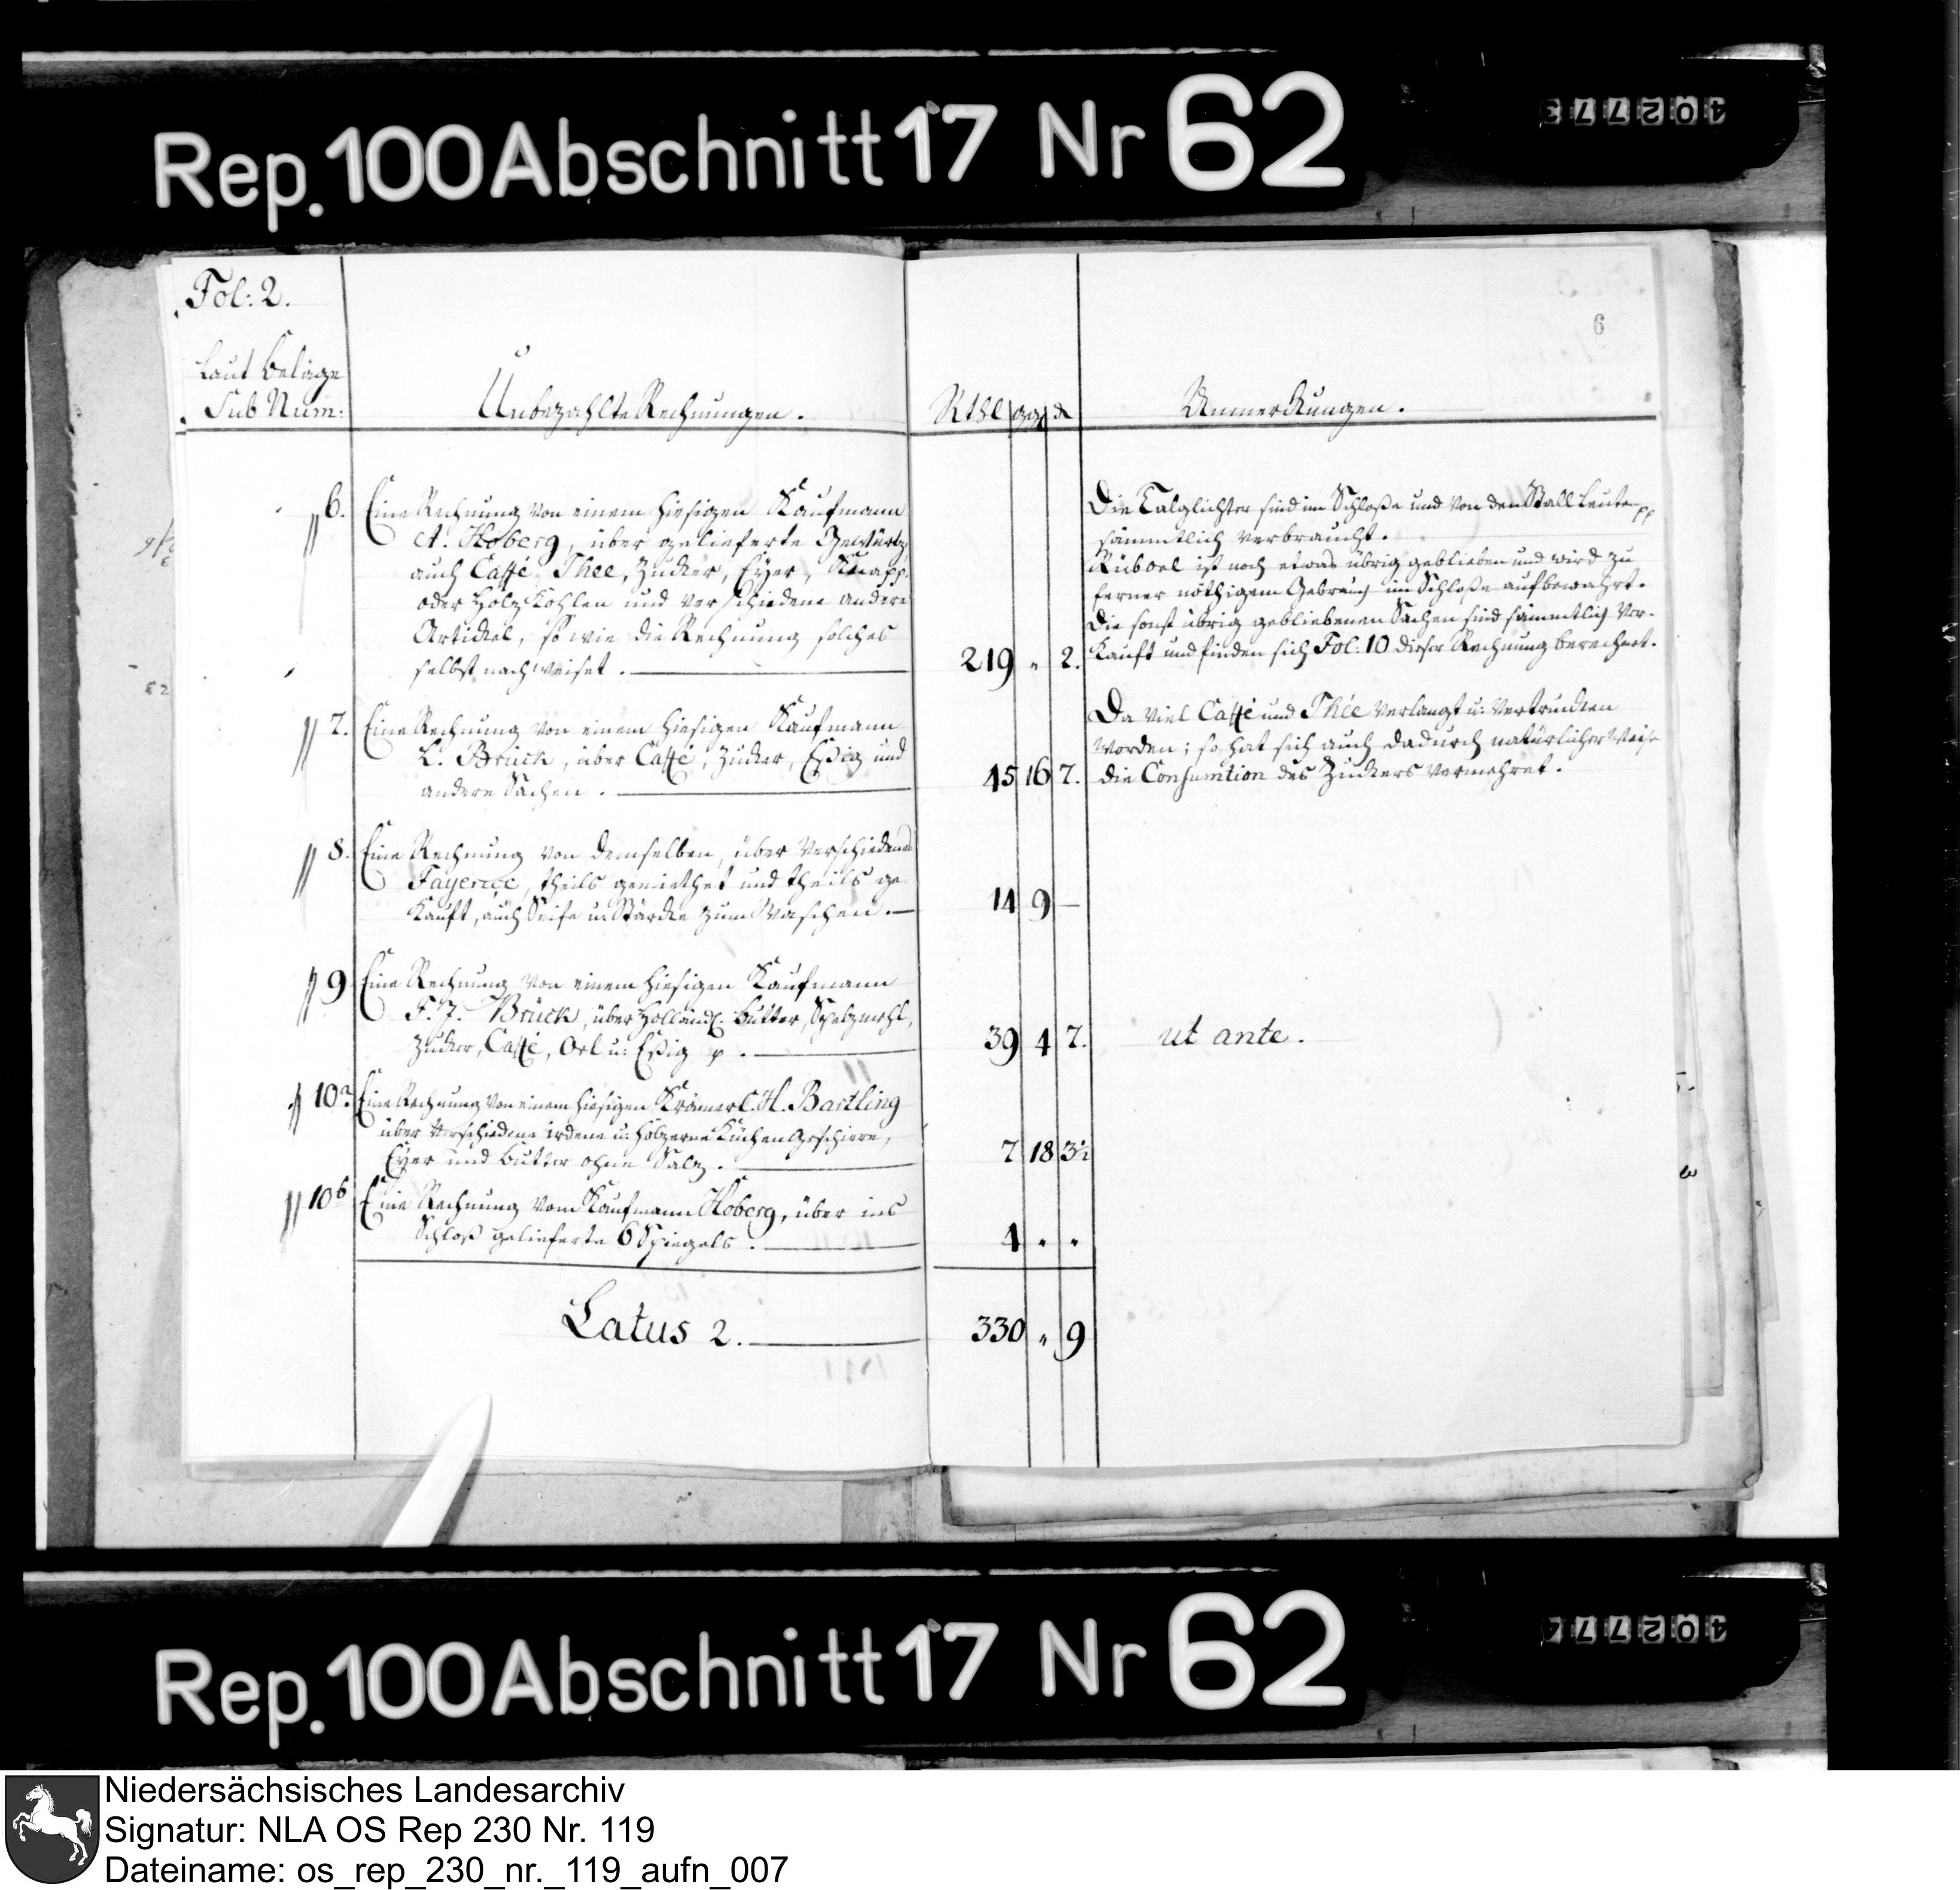 Rep. 100 Abschnitt 17 Nr 62
402773
Fol: 2.
6
Laut Beläge
Sub Num:
Unbezahlte Rechnungen.
Rthl ggr d
Anmerckungen.
6. Eine Rechnung von einem hiesigen Kaufmann
A. Hoberg, über gelieferte Gewürtz,
auch Caffé, Thee, Zucker, Eyer, Knapp-
oder Holz Kohlen und verschiedene andere
Artickel, so wie die Rechnung solches
selbst nachweiset.
219 " 2.
Die Talglichter sind im Schloße und von den Stall Leuten pp
sämmtlich verbraucht.
Rüboel ist noch etwas übrig geblieben und wird zu
ferner nöthigem Gebrauch im Schloße aufbewahrt.
Die sonst übrig gebliebenen Sachen sind sämmtlich ver-
kauft und finden sich Fol: 10 dieser Rechnung berechnet.
7. Eine Rechnung von einem hiesigen Kaufmann
L. Brück, über Caffé, Zucker, Eßig und
andere Sachen.
45 16 7.
Da viel Caffé und Thée verlangt u: vertruncken
worden; so hat sich auch dadurch natürlicher Weise
die Consumtion des Zuckers vermehret.
8. Eine Rechnung von demselben, über verschiedene
Fayence, theils gemiethet und theils ge-
kauft, auch Seife u: Stärcke zum Waschen.
14 9 —
9 Eine Rechnung von einem hiesigen Kaufmann
F. J. Brück, über Holländ: Butter, Spelzmehl,
Zucker, Caffé, Oel u: Eßig p.
39 4 7.
ut ante.
10a Eine Rechnung von einem hiesigen Krämer C. H. Bartling
über verschiedene irdene u: höltzerne Küchen Geschirre,
Eyer und Butter ohne Salz.
7 18 3½
10b Eine Rechnung vom Kaufmann Hoberg, über ins
Schloß gelieferte 6 Spiegels.
4 " "
Latus 2.
330 " 9
Rep. 100 Abschnitt 17 Nr 62
402774
Niedersächsisches Landesarchiv
Signatur: NLA OS Rep 230 Nr. 119
Dateiname: os_rep_230_nr._119_aufn_007